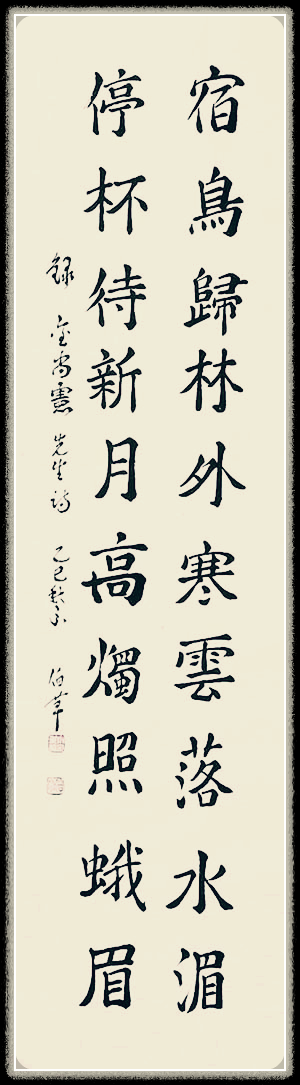 宿鳥歸林外寒雲落水湄
停杯待新月高燭照蛾眉
錄 金尚憲 先生詩 乙巳 伯草